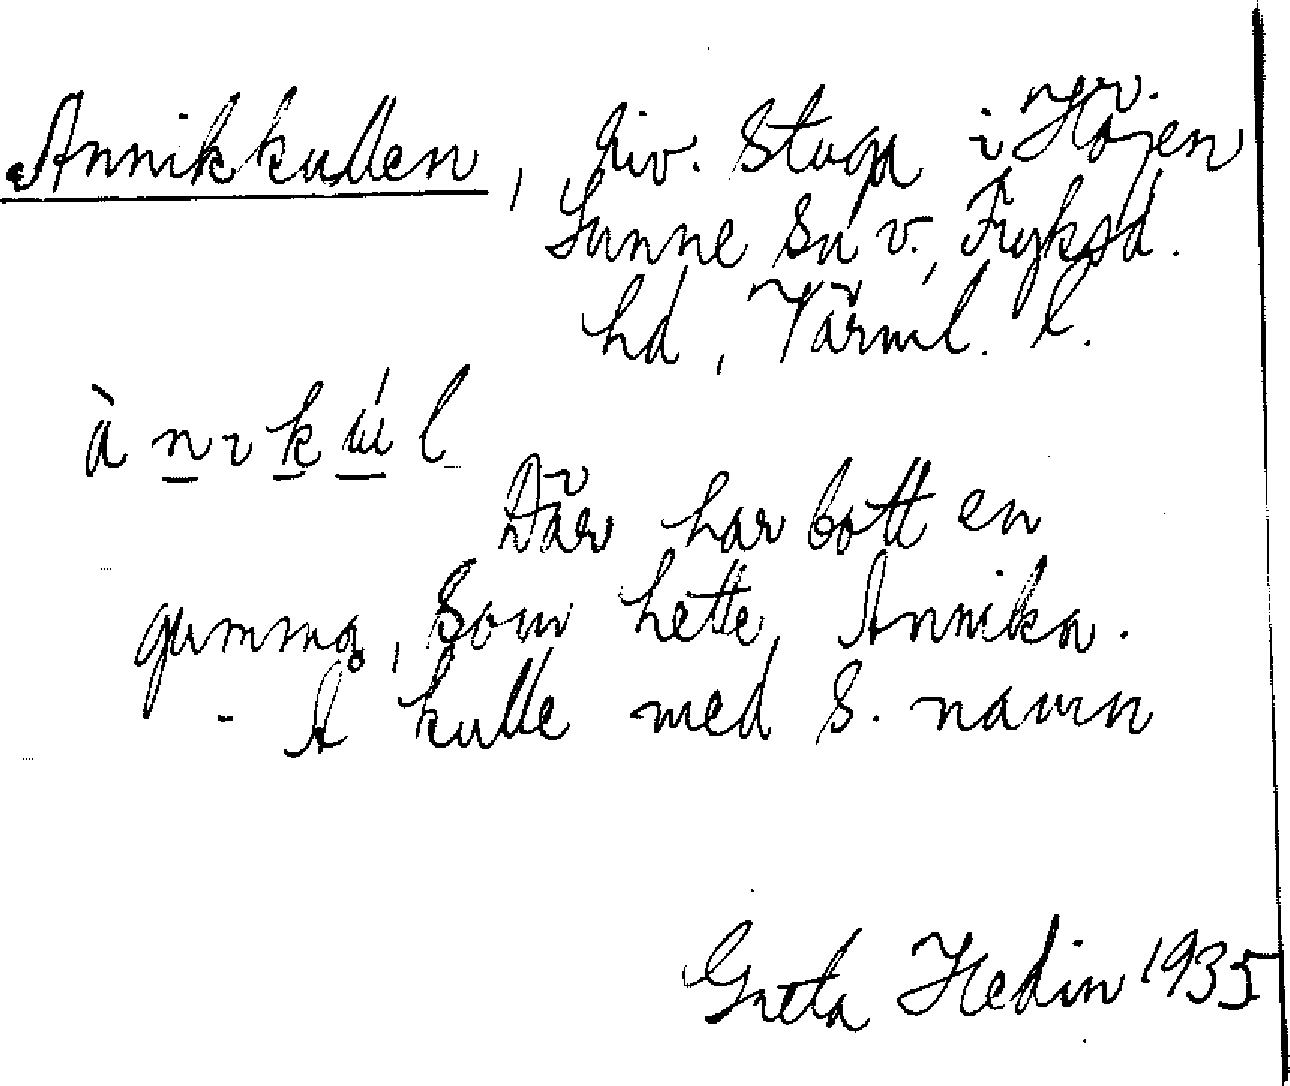 Annikkullen, riv. stuga i Höjen
Sunne sn v., Fryksd.
hd, Värml. l.
Där har bott en
gumma, som hette Annika.
- Å kulle med s. namn
Greta Hedin 1935